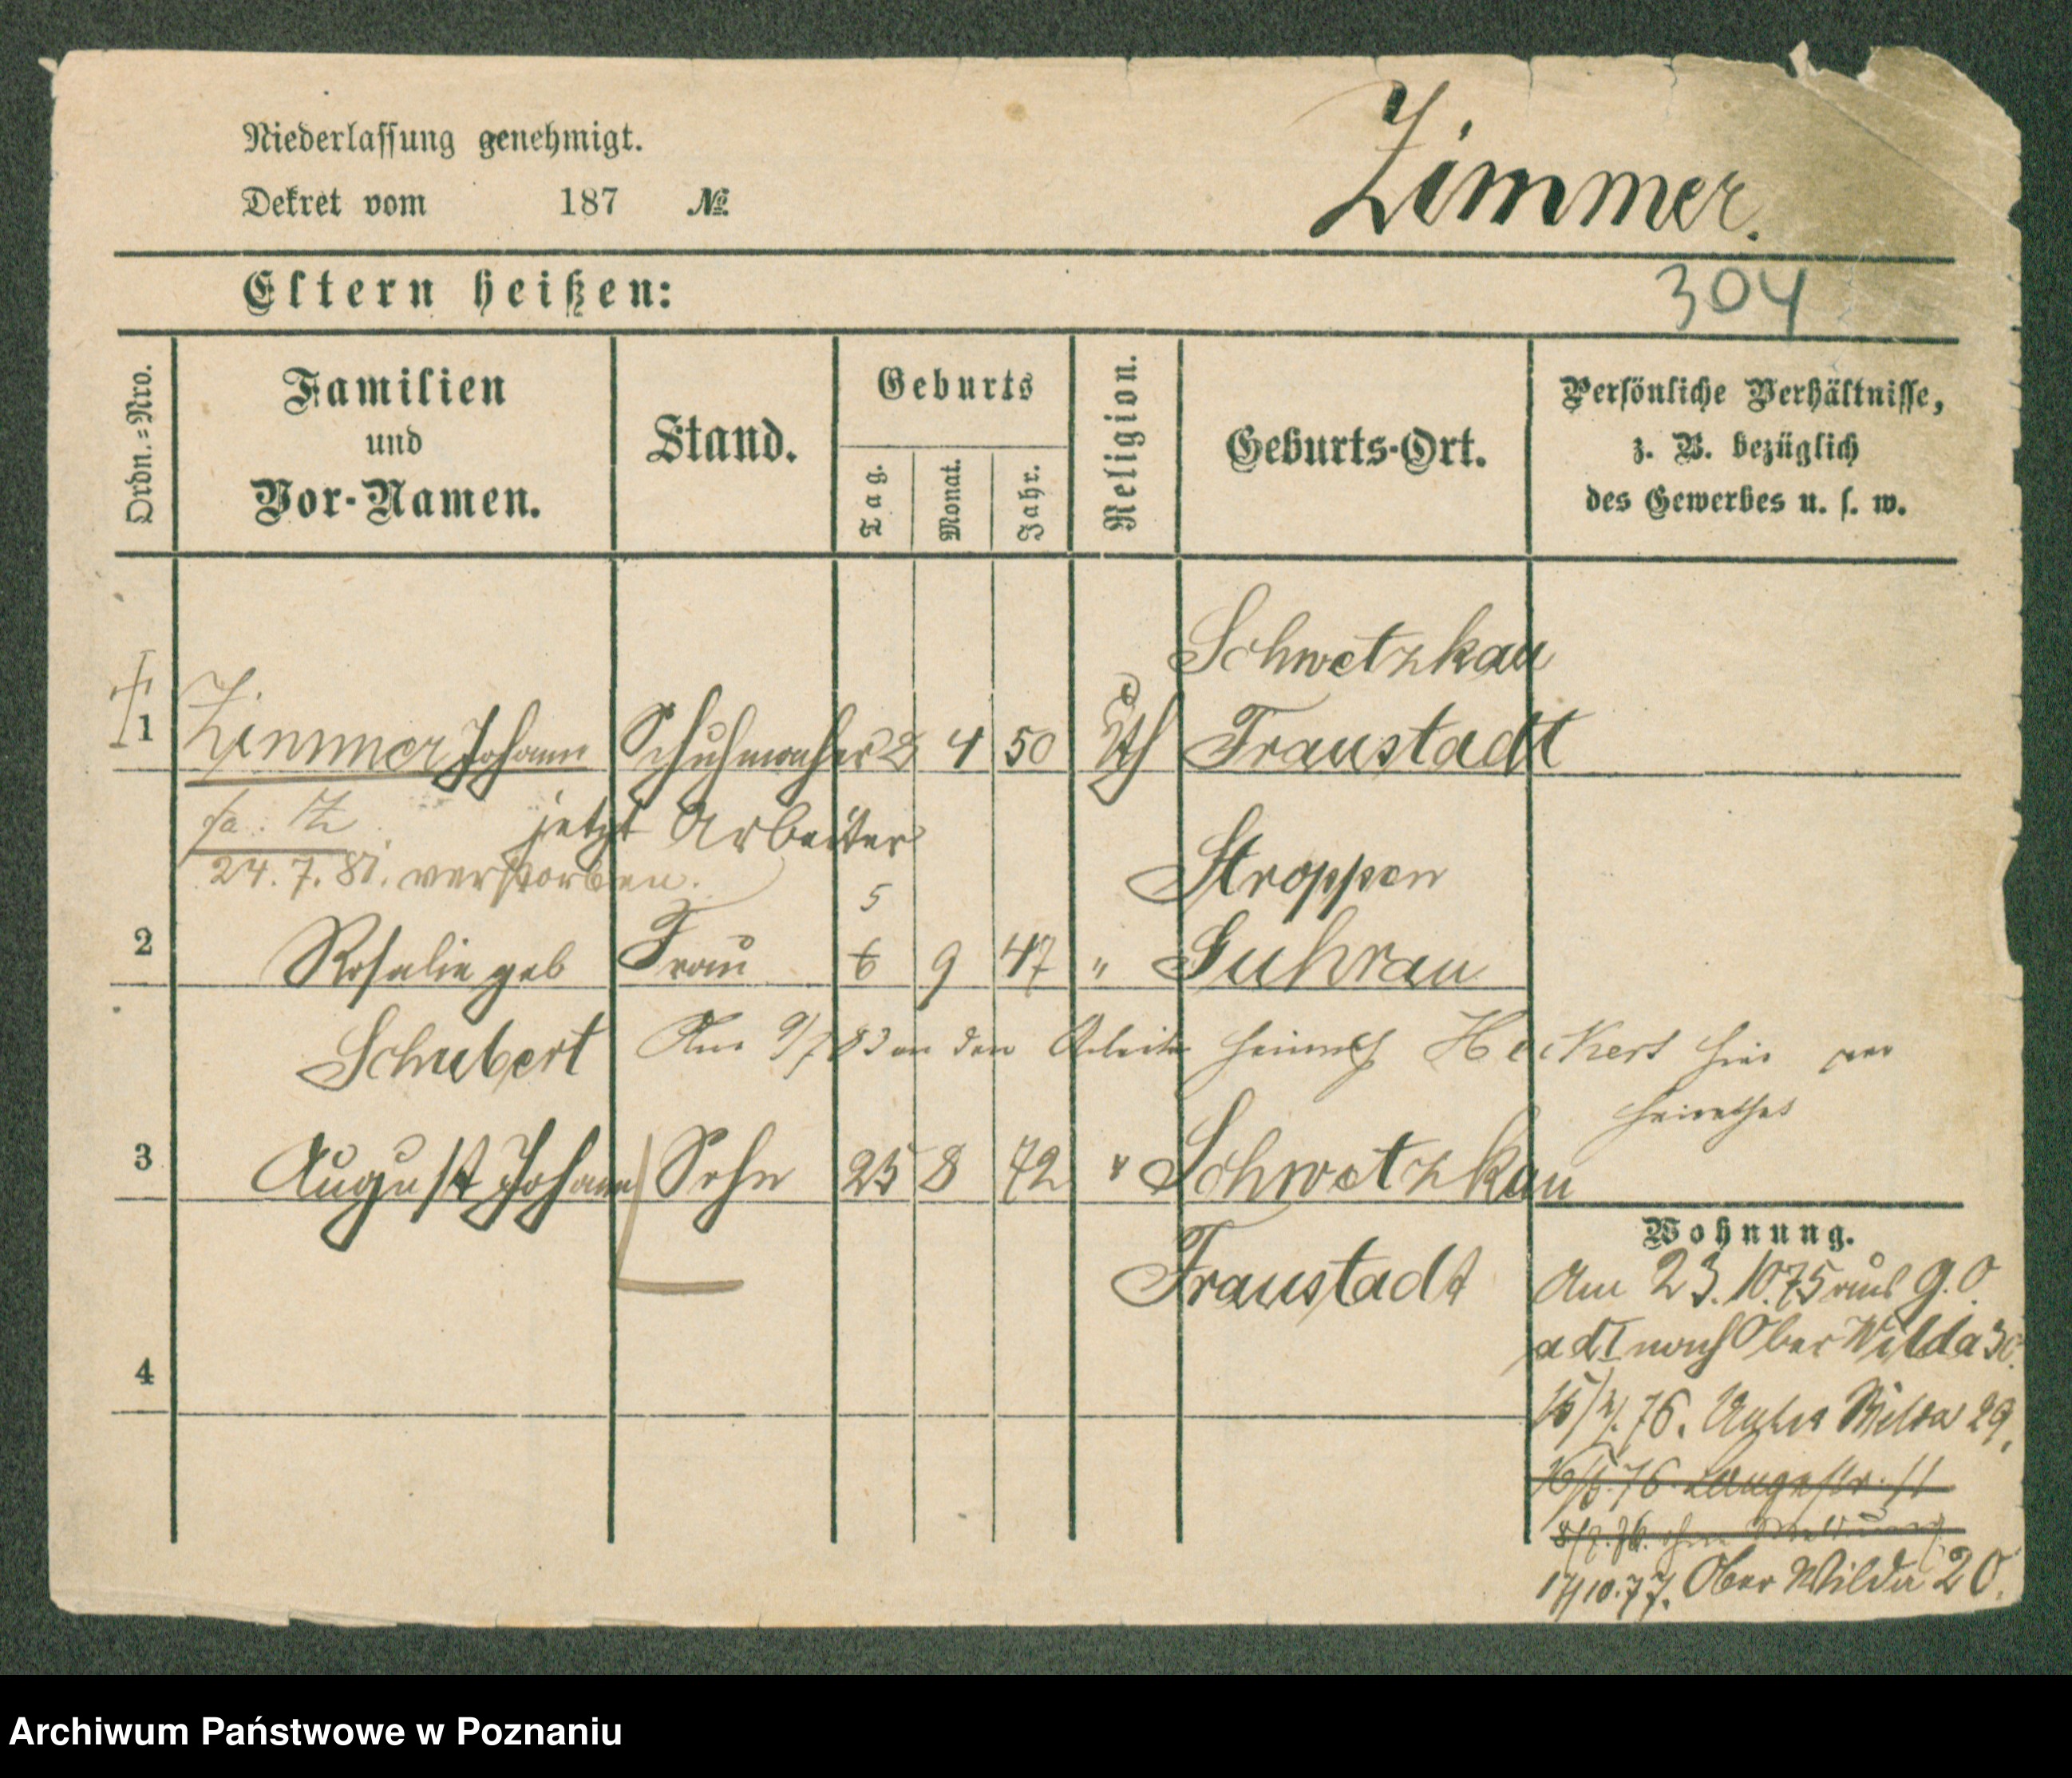 Niederlassung genehmigt.
Dekret vom 187 №
Zimmer.
Eltern heißen:
304
Ordn.=Nro.
Familien
und
Vor-Namen.
Stand.
Geburts
Tag.
Monat.
Jahr.
Religion.
Geburts-Ort.
Persönliche Verhältnisse,
z. B. bezüglich
des Gewerbes u. s. w.
Schwetzkau
1 Zimmer Johann Schuhmacher 8 4 50 Kth Fraustadt
jetzt Arbeiter
24. 7. 81. verstorben.
Stroppen
5
2 Rosalie geb Frau 6 9 47 " Guhrau
Schubert Am 9/7 83 an den Arbeiter Heinrich Heckert hier ver
heirathet
3 August Johann Sohn 25 8 72 " Schwetzkau
Fraustadt
Wohnung.
Am 23.10.75 aus G. O.
nach Ober Wilda 30.
4
76. Unter Wilda 29.
76 Langestr. 11
ohne Meldung
17/10.77. Ober Wilda 20.
Archiwum Państwowe w Poznaniu